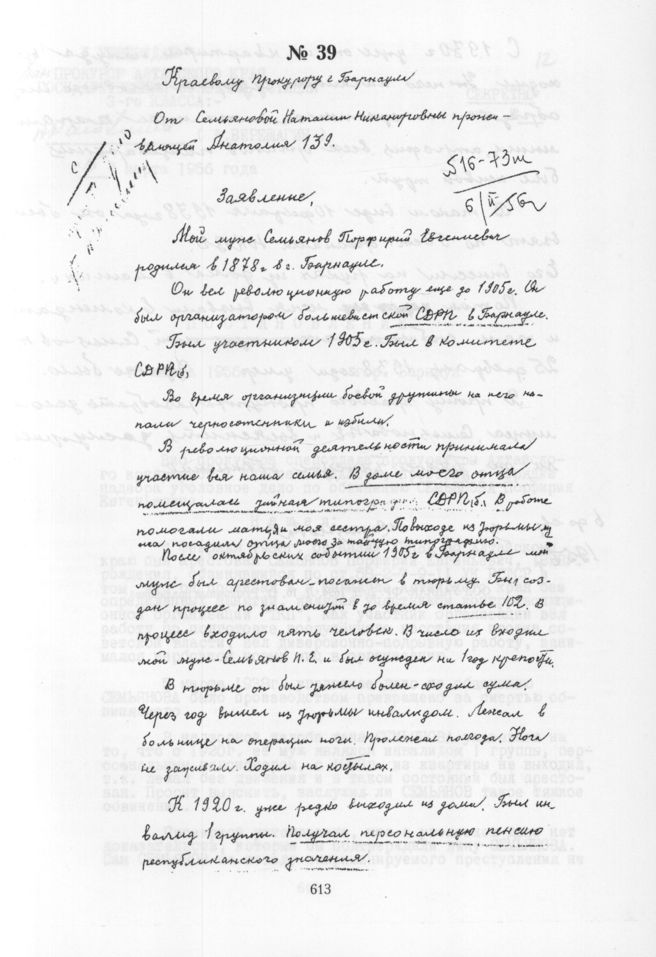 № 39
Краевому прокурору г Барнаула
От Семьяновой Наталии Никаноровны прожи-
вающей Анатолия 139.
516-73т
6/II-56г
Заявление,
Мой муж Семьянов Порфирий Евгениевич
родился в 1878г в г. Барнауле.
Он вел революционную работу еще до 1905г. Он
был организатором большевистской СДРП в Барнауле.
Был участником 1905г. Был в комитете
СДРПб,
Во время организации боевой дружины на него на-
пали черносотенники и избили.
В революционной деятельности принимала
участие вся наша семья. В доме моего отца
помещалась тайная типография СДРП(б). В работе
помогали мать и моя сестра. По выходе из тюрьмы му
жа посадили отца моего за тайную типографию.
После октябрьских событий 1905г в Барнауле мой
муж был арестован-посажен в тюрьму. Был соз-
дан процесс по знаменитой в то время статье 102. В
процесс входило пять человек. В число их входил
мой муж-Семьянов П.Е. и был осужден на 1 год крепости.
В тюрьме он был тяжело болен-сходил с ума.
Через год вышел из тюрьмы инвалидом. Лежал в
больнице на операции ноги. Пролежал полгода. Нога
не заживала. Ходил на костылях.
К 1920г. уже редко выходил из дома. Был ин
валид 1 группы. Получал персональную пенсию
республиканского значения.
613